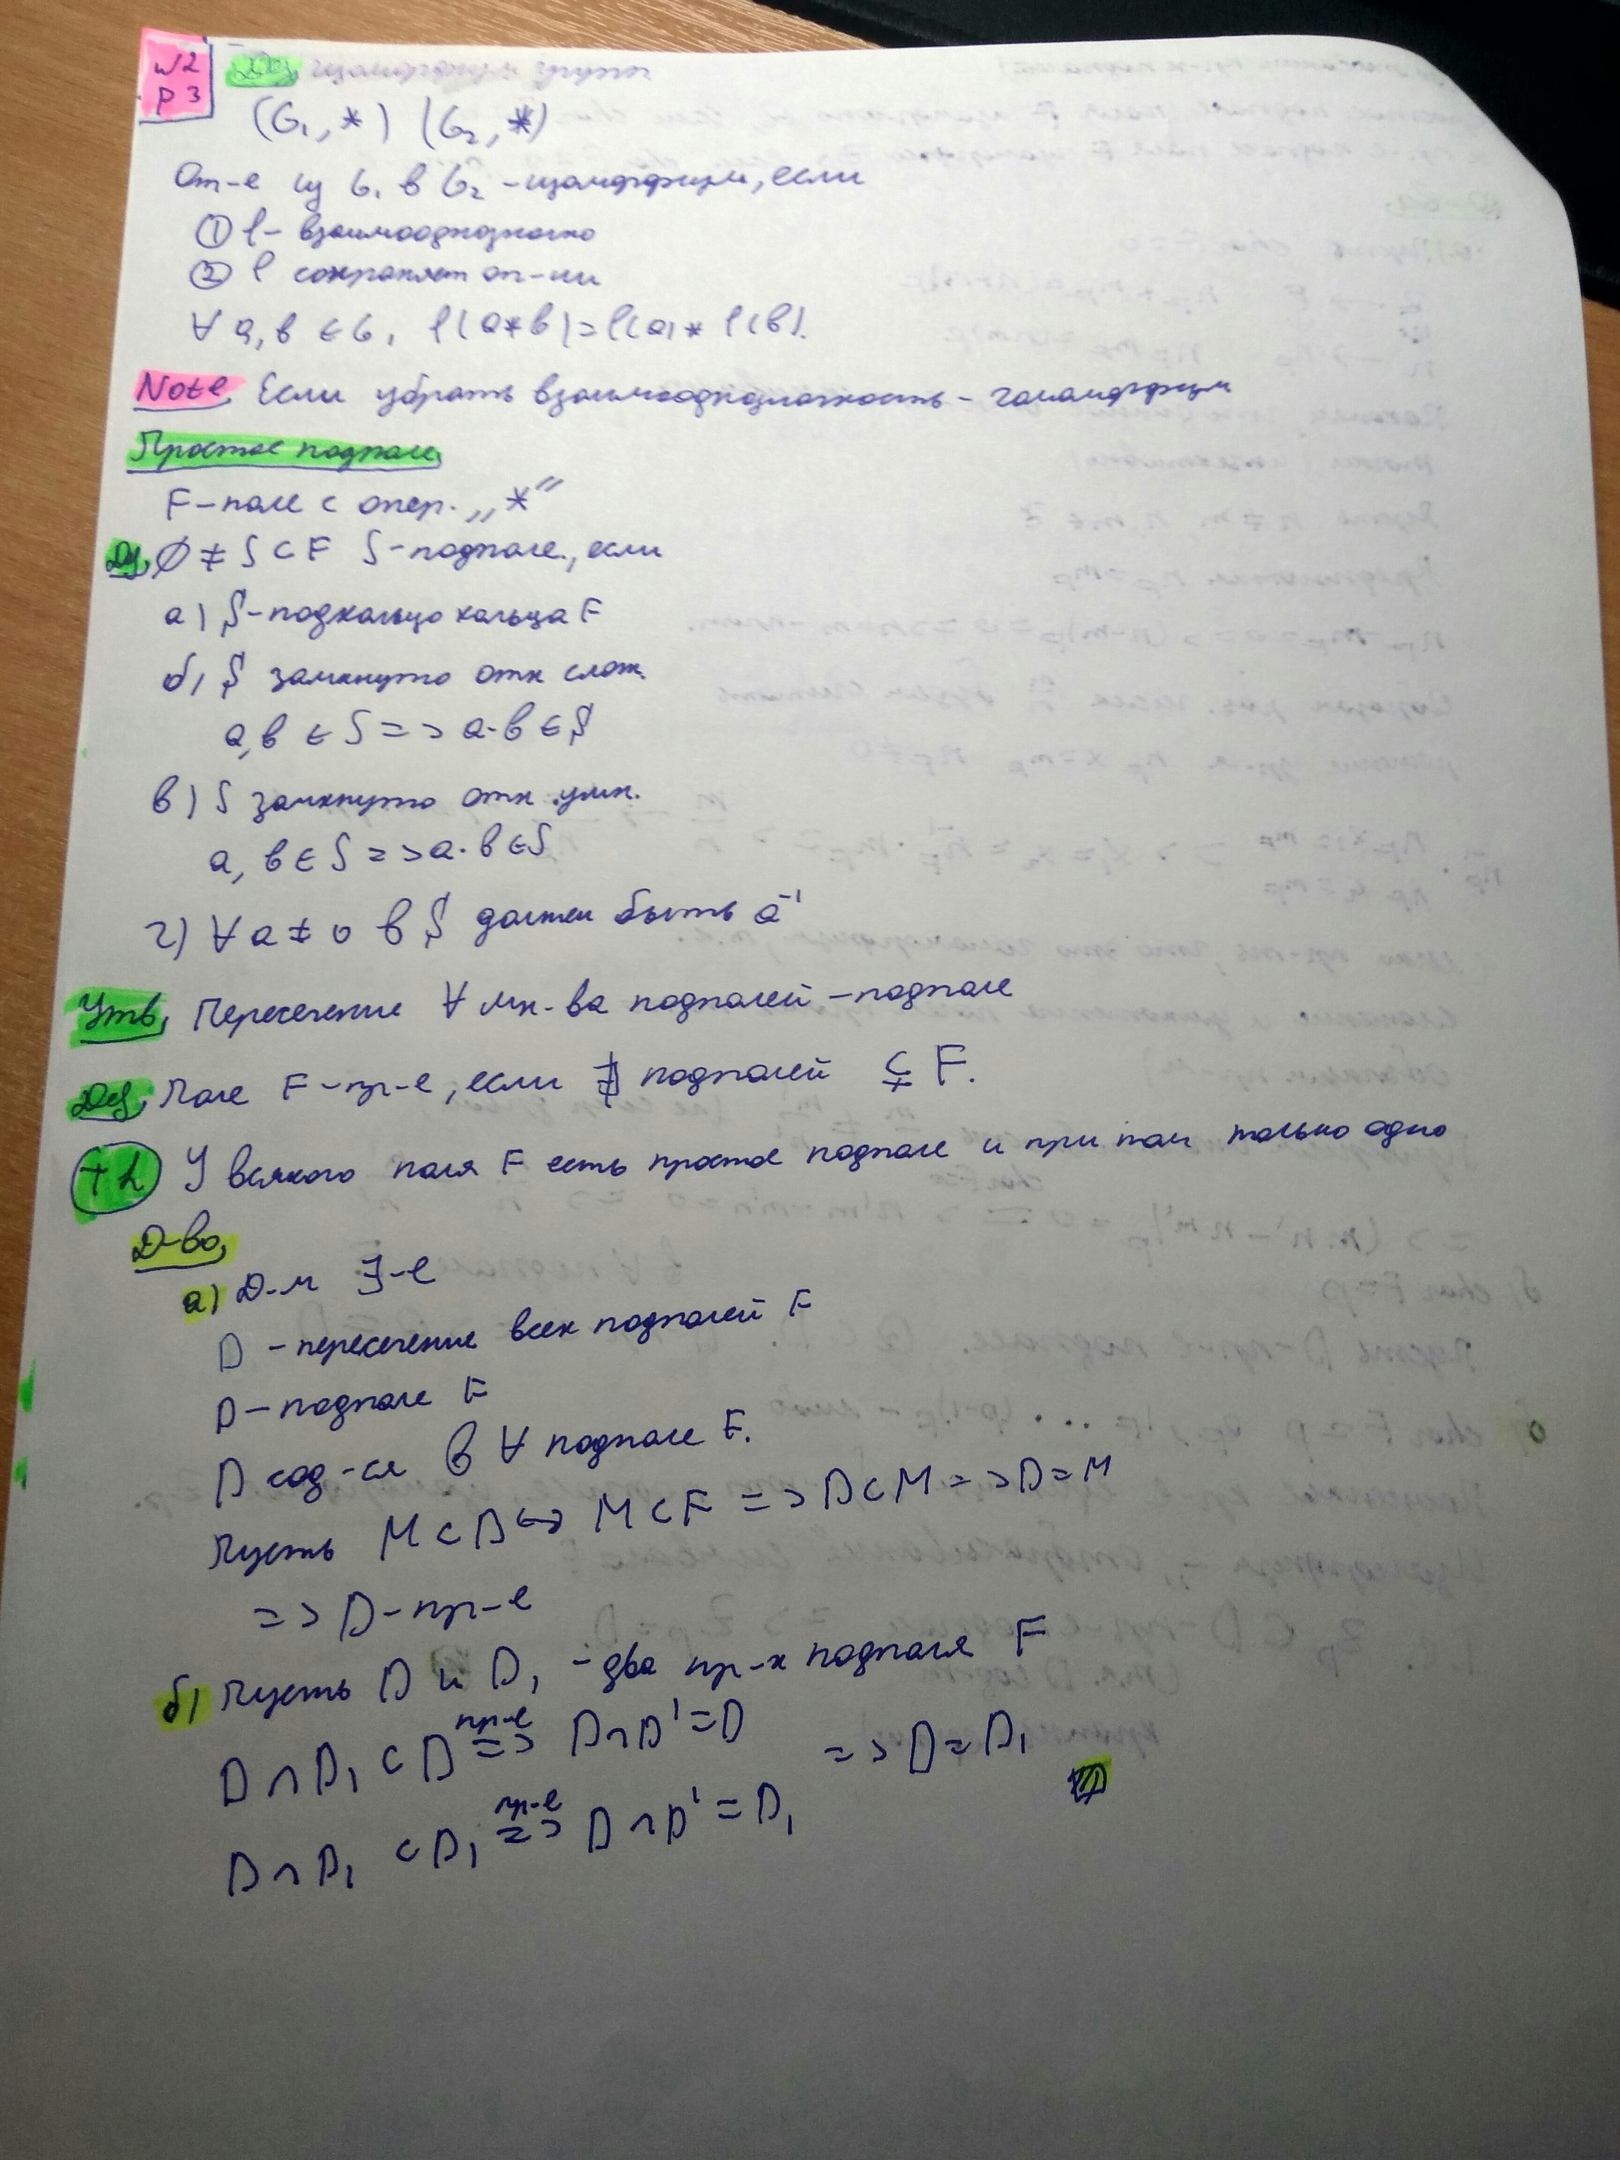 w2
p3
Def изоморфизм групп
(G₁, *) (G₂, *)
От-е из G₁ в G₂ - изоморфизм, если
① l - взаимооднозначно
② l сохраняет оп-ии
∀ a, b ∈ G₁ l(a*b) = l(a) * l(b).
Note Если убрать взаимооднозначность - гомоморфизм
Простое подполе
F - поле с опер. „*“
Def ∅ ≠ S ⊂ F S - подполе, если
а) S - подкольцо кольца F
б) S замкнуто отн слож.
a, b ∈ S => a·b ∈ S
в) S замкнуто отн умн.
a, b ∈ S => a·b ∈ S
г) ∀ a ≠ 0 в S должен быть a⁻¹
Утв. Пересечение ∀ мн-ва подполей - подполе
Def. Поле F - пр-е, если ∄ подполей ⊊ F.
У всякого поля F есть простое подполе и при том только одно
Д-во.
а) Д-м ∃-е
D - пересечение всех подполей F
D - подполе F
D сод-ся в ∀ подполе F.
Пусть M ⊂ D <=> M ⊂ F => D ⊂ M => D = M
=> D - пр-е
б) Пусть D и D₁ - два пр-х подполя F
D ∩ D₁ ⊂ D =пр-е=> D ∩ D' = D
=> D = D₁
D ∩ D₁ ⊂ D₁ =пр-е=> D ∩ D' = D₁